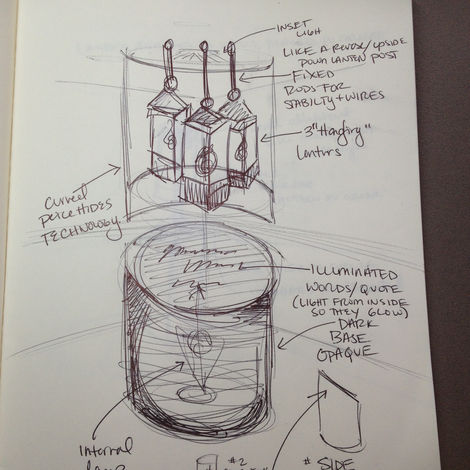 INSET
LIGHT
LIKE A REVERSE/UPSIDE
DOWN LANTERN POST
FIXED
RODS FOR
STABILTY + WIRES
3 "Hanging"
Lanterns
PIECE HIDES
TECHNOLOGY
ILLUMINATED
WORDS/QUOTE
(LIGHT FROM INSIDE
SO THEY GLOW)
DARK
BASE
OPAQUE
Internal
#2
# SIDE